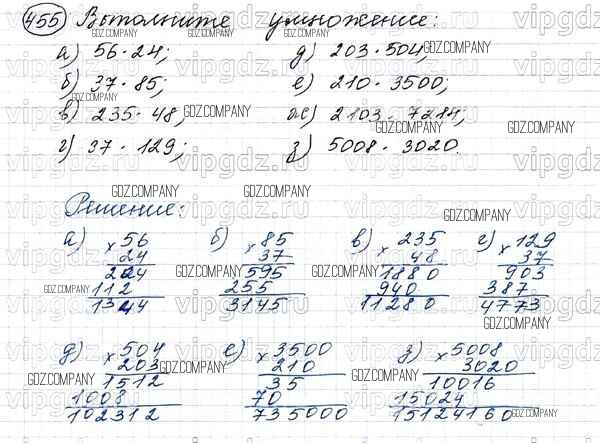 455 Выполните умножение:
а) 56 · 24; д) 203 · 504;
б) 37 · 85; е) 210 · 3500;
в) 235 · 48; ж) 2103 · 7214;
г) 37 · 129; з) 5008 · 3020.
Решение:
а) × 56 б) × 85 в) × 235 г) × 129
24 37 48 37
224 595 1880 903
112 255 940 387
1344 3145 11280 4773
д) × 504 е) × 3500 з) × 5008
203 210 3020
1512 35 10016
1008 70 15024
102312 735000 15124160
GDZ.COMPANY
vipgdz.ru